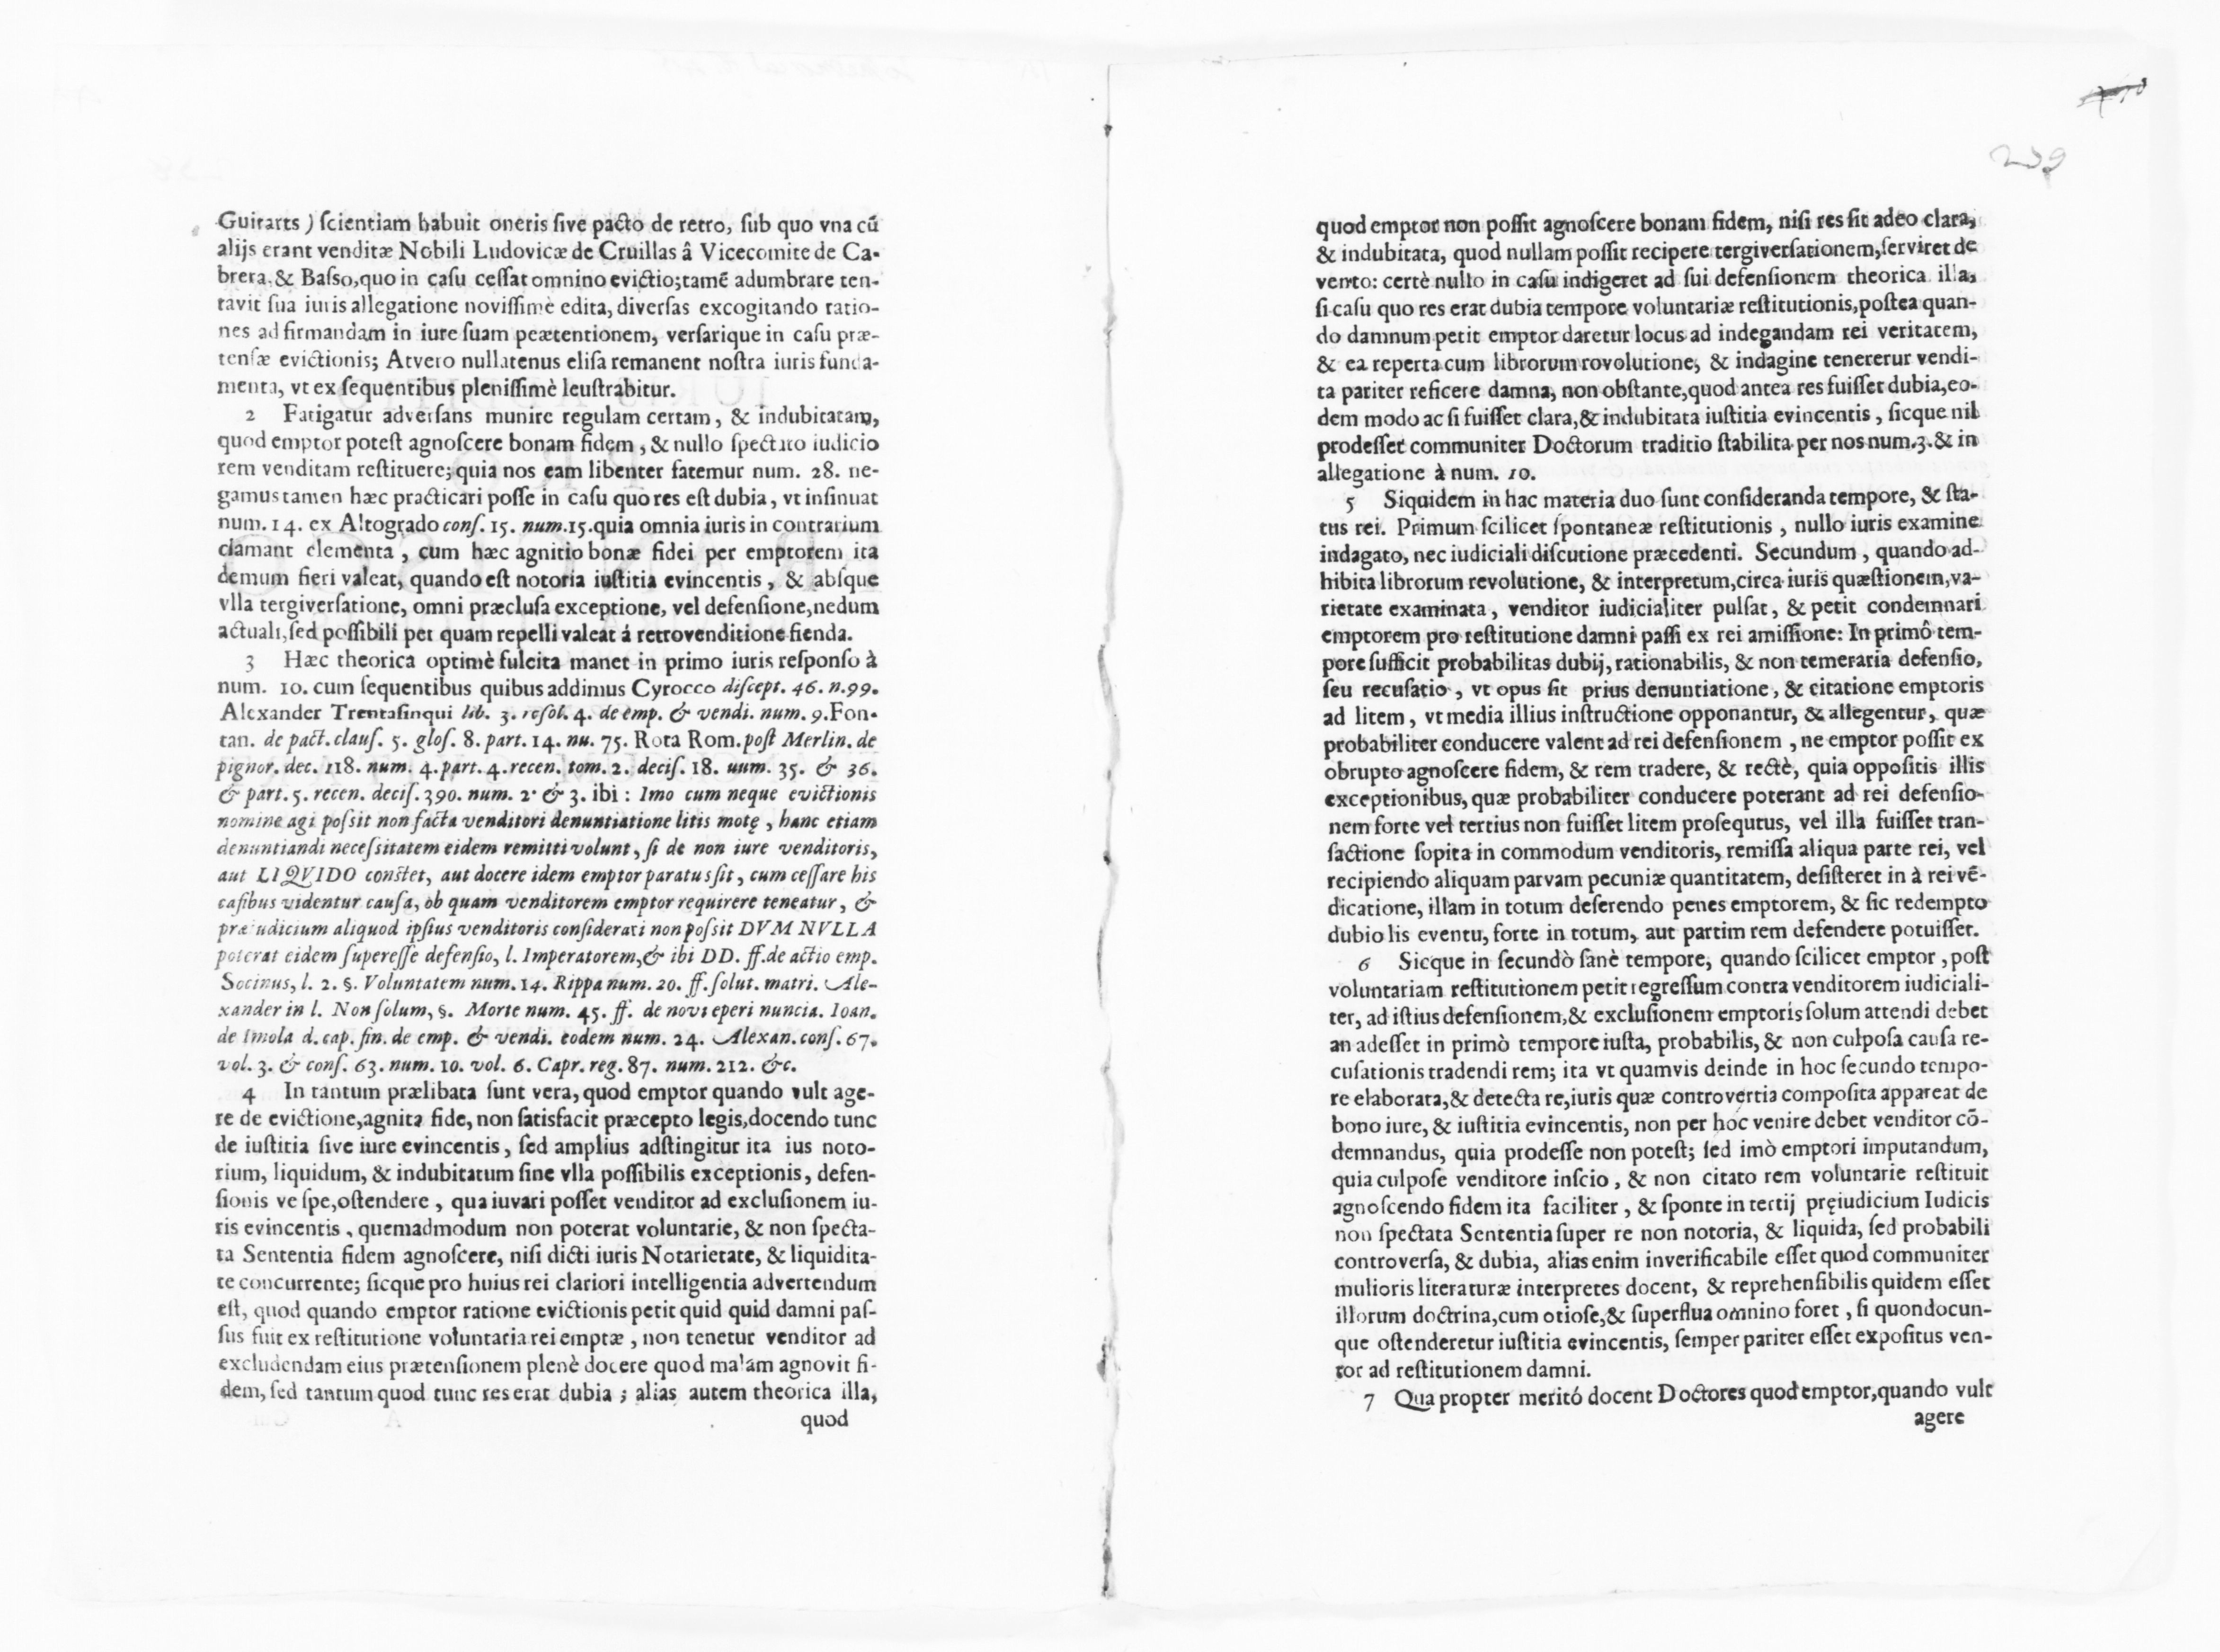 Guitarts ) ſcientiam habuit oneris ſive pacto de retro, ſub quo vna cū
alijs erant venditæ Nobili Ludovicæ de Cruillas â Vicecomite de Ca-
brera, & Baſso,quo in caſu ceſſat omnino evictio;tamē adumbrare ten-
tavit ſua iuris allegatione noviſſimè edita, diverſas excogitando ratio-
nes ad firmandam in iure ſuam peætentionem, verſarique in caſu præ-
tenſæ evictionis; Atvero nullatenus eliſa remanent noſtra iuris funda-
menta, vt ex ſequentibus pleniſſimè leuſtrabitur.
2 Fatigatur adverſans munire regulam certam, & indubitatam,
quod emptor poteſt agnoſcere bonam fidem, & nullo ſpectato iudicio
rem venditam reſtituere; quia nos eam libenter fatemur num. 28. ne-
gamus tamen hæc practicari poſſe in caſu quo res eſt dubia, vt inſinuat
num. 14. ex Altogrado conſ. 15. num.15.quia omnia iuris in contrarium
clamant elementa, cum hæc agnitio bonæ fidei per emptorem ita
demum fieri valeat, quando eſt notoria iuſtitia evincentis, & abſque
vlla tergiverſatione, omni præcluſa exceptione, vel defenſione,nedum
actuali,ſed poſſibili per quam repelli valeat á retrovenditione fienda.
3 Hæc theorica optimè fulcita manet in primo iuris reſponſo à
num. 10. cum ſequentibus quibus addimus Cyrocco diſcept. 46. n.99.
Alexander Trentaſinqui lib. 3. reſol. 4. de emp. & vendi. num. 9.Fon-
tan. de pact. clauſ. 5. gloſ. 8. part. 14. nu. 75. Rota Rom. poſt Merlin. de
pignor. dec. 118. num. 4. part. 4. recen. tom. 2. deciſ. 18. uum. 35. & 36.
& part. 5. recen. deciſ. 390. num. 2. & 3. ibi : Imo cum neque evictionis
nomine agi poſsit non facta venditori denuntiatione litis motę, hanc etiam
denuntiandi neceſsitatem eidem remitti volunt, ſi de non iure venditoris,
aut LIQVIDO conſtet, aut docere idem emptor paratus ſit, cum ceſſare his
caſibus videntur cauſa, ob quam venditorem emptor requirere teneatur, &
præiudicium aliquod ipſius venditoris conſiderari non poſsit DVM NVLLA
poterat eidem ſupereſſe defenſio, l. Imperatorem,& ibi DD. ff.de actio emp.
Socinus, l. 2. §. Voluntatem num. 14. Rippa num. 20. ff. ſolut. matri. Ale-
xander in l. Non ſolum, §. Morte num. 45. ff. de novi operi nuncia. Ioan.
de Imola d. cap. fin. de emp. & vendi. eodem num. 24. Alexan. conſ. 67.
vol. 3. & conſ. 63. num. 10. vol. 6. Capr. reg. 87. num. 212. &c.
4 In tantum prælibata ſunt vera, quod emptor quando vult age-
re de evictione,agnita fide, non ſatisfacit præcepto legis,docendo tunc
de iuſtitia ſive iure evincentis, ſed amplius adſtingitur ita ius noto-
rium, liquidum, & indubitatum ſine vlla poſſibilis exceptionis, defen-
ſionis ve ſpe,oſtendere, qua iuvari poſſet venditor ad excluſionem iu-
ris evincentis, quemadmodum non poterat voluntarie, & non ſpecta-
ta Sententia fidem agnoſcere, niſi dicti iuris Notarietate, & liquidita-
te concurrente; ſicque pro huius rei clariori intelligentia advertendum
eſt, quod quando emptor ratione evictionis petit quid quid damni paſ-
ſus fuit ex reſtitutione voluntaria rei emptæ, non tenetur venditor ad
excludendam eius prætenſionem plenè docere quod malam agnovit fi-
dem, ſed tantum quod tunc res erat dubia; alias autem theorica illa,
quod
239
quod emptor non poſſit agnoſcere bonam fidem, niſi res ſit adeo clara,
& indubitata, quod nullam poſſit recipere tergiverſationem,ſerviret de
vento: certè nullo in caſu indigeret ad ſui defenſionem theorica illa,
ſi caſu quo res erat dubia tempore voluntariæ reſtitutionis,poſtea quan-
do damnum petit emptor daretur locus ad indegandam rei veritatem,
& ea reperta cum librorum rovolutione, & indagine tenererur vendi-
ta pariter reficere damna, non obſtante,quod antea res fuiſſet dubia,eo-
dem modo ac ſi fuiſſet clara,& indubitata iuſtitia evincentis, ſicque nil
prodeſſet communiter Doctorum traditio ſtabilita per nos num.3.& in
allegatione à num. 10.
5 Siquidem in hac materia duo ſunt conſideranda tempore, & ſta-
tus rei. Primum ſcilicet ſpontaneæ reſtitutionis, nullo iuris examine
indagato, nec iudiciali diſcutione præcedenti. Secundum, quando ad-
hibita librorum revolutione, & interpretum,circa iuris quæſtionem,va-
rietate examinata, venditor iudicialiter pulſat, & petit condemnari
emptorem pro reſtitutione damni paſſi ex rei amiſſione: In primô tem-
pore ſufficit probabilitas dubij, rationabilis, & non temeraria defenſio,
ſeu recuſatio, vt opus ſit prius denuntiatione, & citatione emptoris
ad litem, vt media illius inſtructione opponantur, & allegentur, quæ
probabiliter conducere valent ad rei defenſionem, ne emptor poſſit ex
obrupto agnoſcere fidem, & rem tradere, & rectè, quia oppoſitis illis
exceptionibus, quæ probabiliter conducere poterant ad rei defenſio-
nem forte vel tertius non fuiſſet litem proſequtus, vel illa fuiſſet tran-
ſactione ſopita in commodum venditoris, remiſſa aliqua parte rei, vel
recipiendo aliquam parvam pecuniæ quantitatem, deſiſteret in à rei vē-
dicatione, illam in totum deferendo penes emptorem, & ſic redempto
dubio lis eventu, forte in totum, aut partim rem defendere potuiſſet.
6 Sicque in ſecundò ſanè tempore, quando ſcilicet emptor, poſt
voluntariam reſtitutionem petit regreſſum contra venditorem iudiciali-
ter, ad iſtius defenſionem,& excluſionem emptoris ſolum attendi debet
an adeſſet in primò tempore iuſta, probabilis, & non culpoſa cauſa re-
cuſationis tradendi rem; ita vt quamvis deinde in hoc ſecundo tempo-
re elaborata,& detecta re,iuris quæ controvertia compoſita appareat de
bono iure, & iuſtitia evincentis, non per hoc venire debet venditor cō-
demnandus, quia prodeſſe non poteſt; ſed imò emptori imputandum,
quia culpoſe venditore inſcio, & non citato rem voluntarie reſtituit
agnoſcendo fidem ita faciliter, & ſponte in tertij pręiudicium Iudicis
non ſpectata Sententia ſuper re non notoria, & liquida, ſed probabili
controverſa, & dubia, alias enim inverificabile eſſet quod communiter
mulioris literaturæ interpretes docent, & reprehenſibilis quidem eſſet
illorum doctrina,cum otioſe,& ſuperflua omnino foret, ſi quondocun-
que oſtenderetur iuſtitia evincentis, ſemper pariter eſſet expoſitus ven-
tor ad reſtitutionem damni.
7 Qua propter meritó docent Doctores quod emptor,quando vult
agere